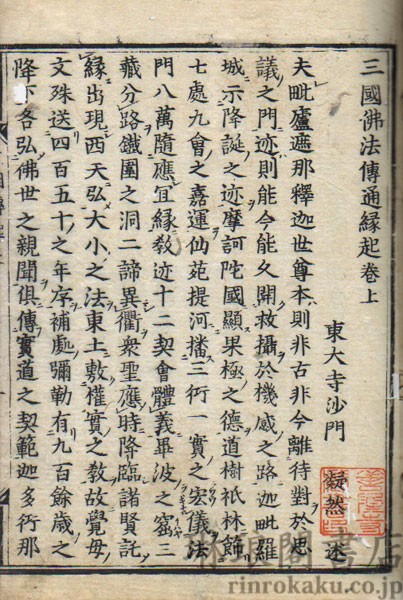 三國佛法傳通緣起卷上
東大寺沙門 凝然 述
夫毗盧遮那釋迦世尊本則非古非今離待對於思
議之門迹則能今能久開救攝於機感之路迦毗羅
城示降誕之迹摩訶陀國顯果極之德道樹祇林篩
七處九會之嘉運仙苑提河播三行一實之宏儀法
門八萬隨應冝緣教迹十二契會體義畢波之窟三
藏分路鐵圍之洞二諦異衢衆聖應時降臨諸賢託
緣出現西天弘大小之法東土敷權實之教故覺母
文殊送四百五十之年序補處彌勒有九百餘歲之
降下各弘佛世之親聞俱傳實道之契範迦多衍那
琳琅閣書店
rinrokaku.co.jp